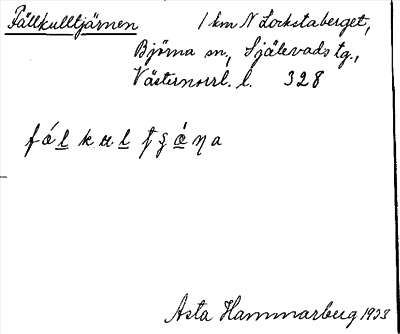 Fällkulltjärnen 1 km N Lockstaberget,
Björna sn, Själevads tg.,
Västernorrl. l. 328
Asta Hammarberg 1933